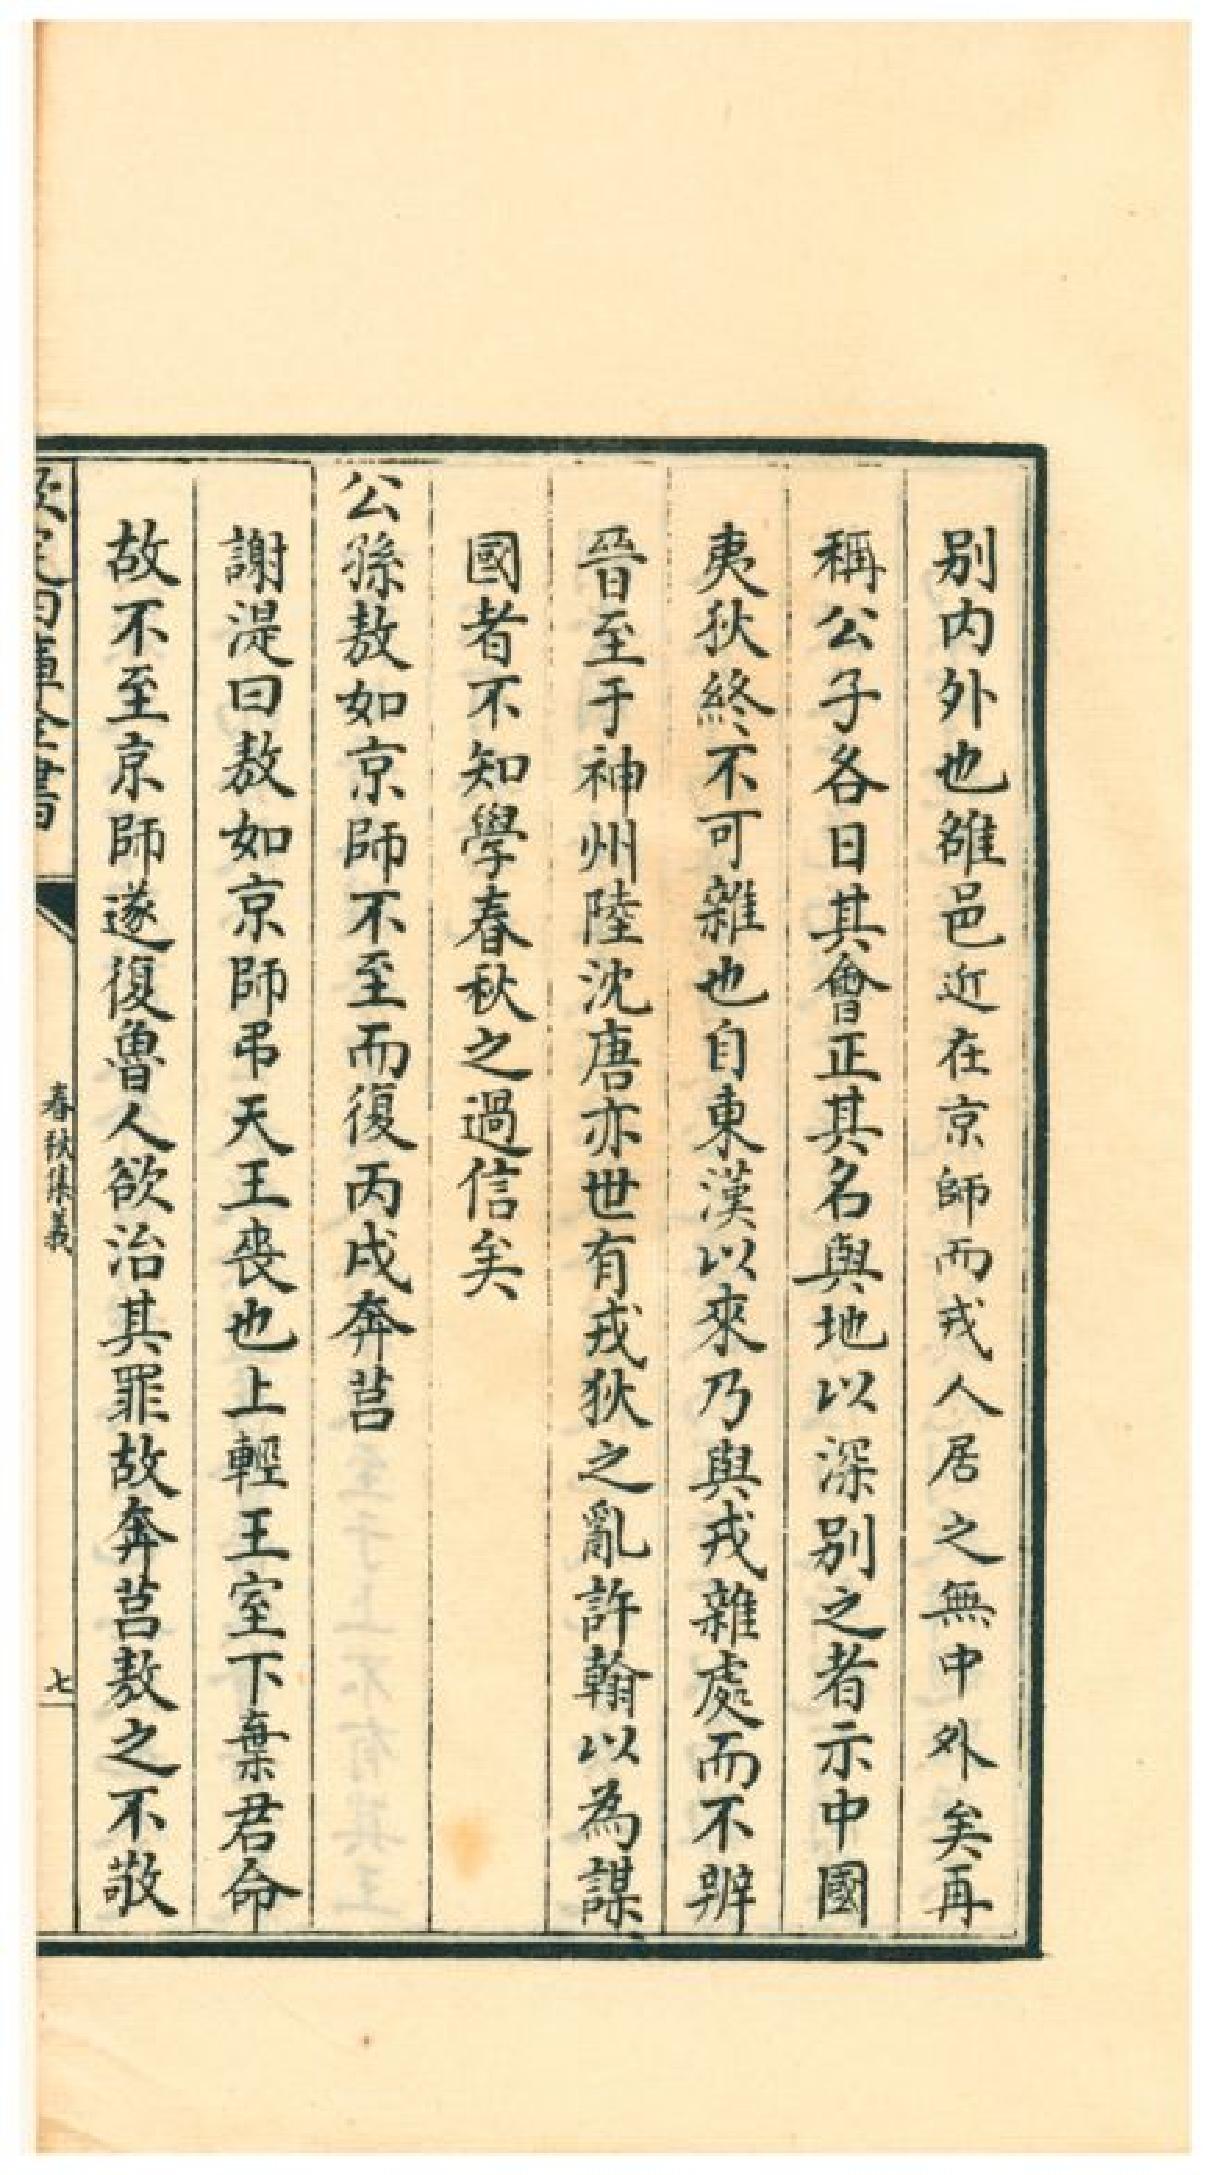 别内外也雒邑近在京師而戎人居之無中外矣再
稱公子各日其會正其名與地以深别之者示中國
夷狄終不可雜也自東漢以來乃與戎雜處而不辨
晉至于神州陸沈唐亦世有戎狄之亂許翰以為謀
國者不知學春秋之過信矣
公孫敖如京師不至而復丙戌奔莒
謝湜曰敖如京師弔天王喪也上輕王室下棄君命
故不至京師遂復魯人欲治其罪故奔莒敖之不敬
欽定四庫全書
春秋集義
七